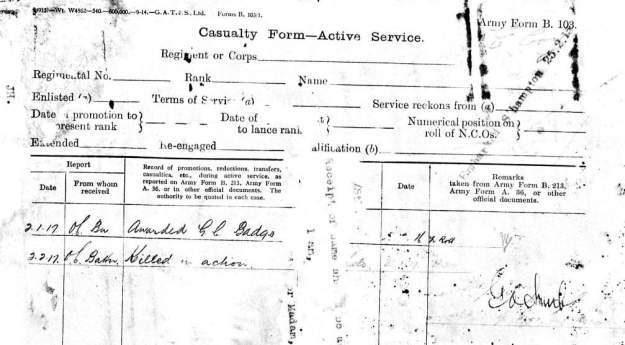 W4862—540. 500,000.—9-14.—G. A. T. & S., Ltd. Forms B. 103/1.
Army Form B. 103.
Casualty Form—Active Service.
Regiment or Corps
Regimental No. Rank Name
Enlisted (a) Terms of Service (a) Service reckons from (a)
Date promotion to present rank } Date of to lance rank } Numerical position on roll of N.C.Os. }
Extended Re-engaged alification (b)
Embarked S'hampton 25.2.15
Report
Date
From whom received
Record of promotions, reductions, transfers,
casualties, etc., during active service, as
reported on Army Form B. 213, Army Form
A. 36, or in other official documents. The
authority to be quoted in each case.
Date
Remarks
taken from Army Form B. 213,
Army Form A. 36, or other
official documents.
2.1.17 O.C. Bn Awarded G C Badge
2.2.17. O.C. Battn. Killed in action
Roll
or Madam,